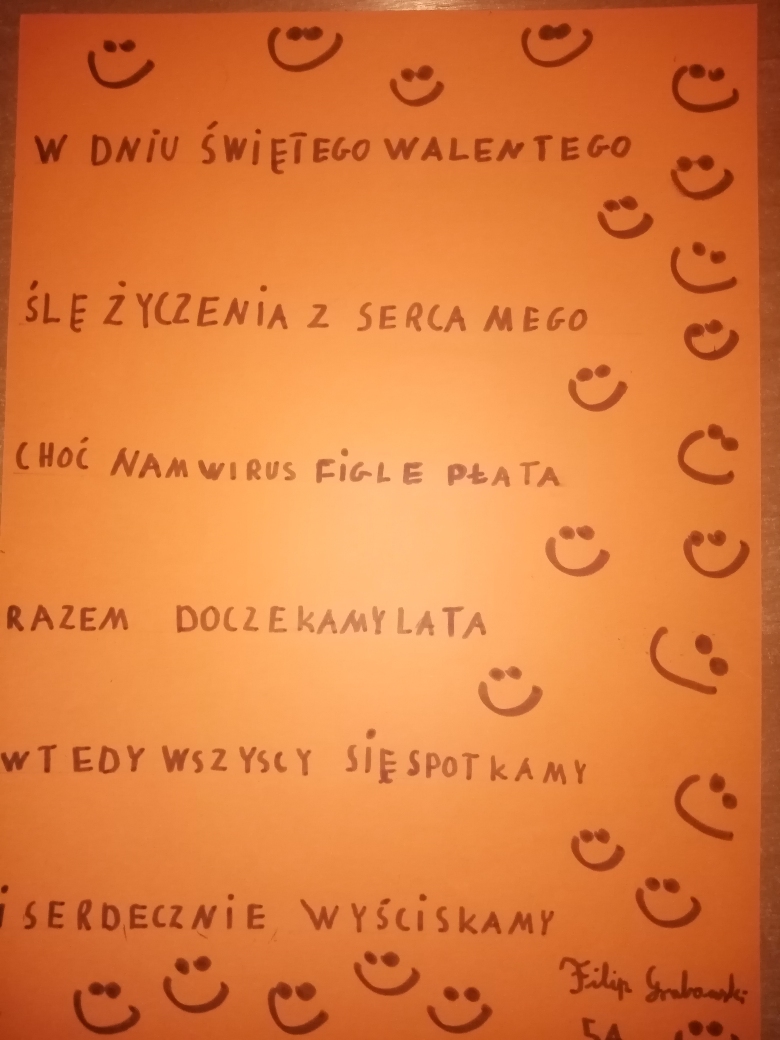 W DNiU ŚWiĘTEGO WALENTEGO
ŚLĘ ŻYCZENiA Z SERCA MEGO
CHOĆ NAM WIRUS FiGLE PŁATA
RAZEM DOCZEKAMY LATA
WTEDY WSZYSCY SIĘ SPOTKAMY
i SERDECZNiE WYŚCiSKAMY
Filip Grabowski
5A